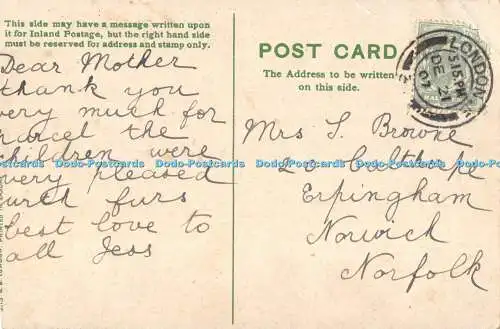 This side may have a message written upon
it for Inland Postage, but the right hand side
must be reserved for address and stamp only.
Dear Mother
thank you
very much for
parcel the
children were
very pleased
with furs
best love to
all Jess
POST CARD
The Address to be written
on this side.
Mrs S. Browne
Calthorpe
Erpingham
Norwich
Norfolk
LONDON
5.15 PM
DE 21
07
Dodo-Postcards Dodo-Postcards Dodo-Postcards Dodo-Postcards Dodo-Postcards Dodo-Postcards